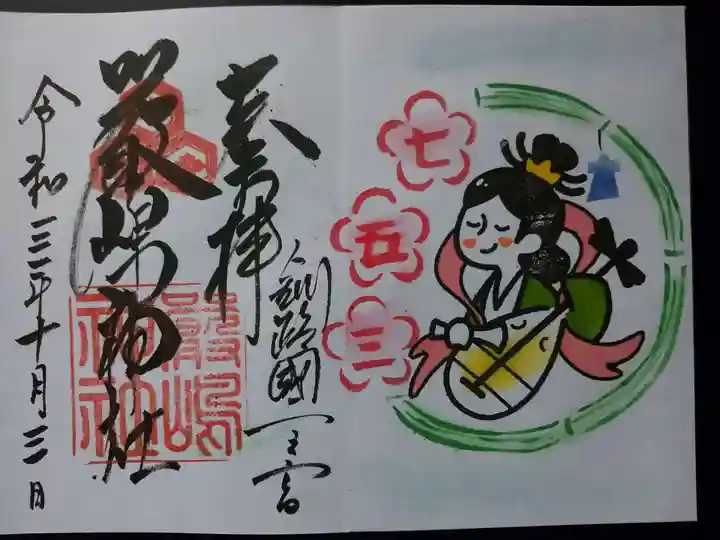 七五三
奉拝
釧路國一之宮
嚴嶋神社
嚴嶋
神社
令和三年十月三日